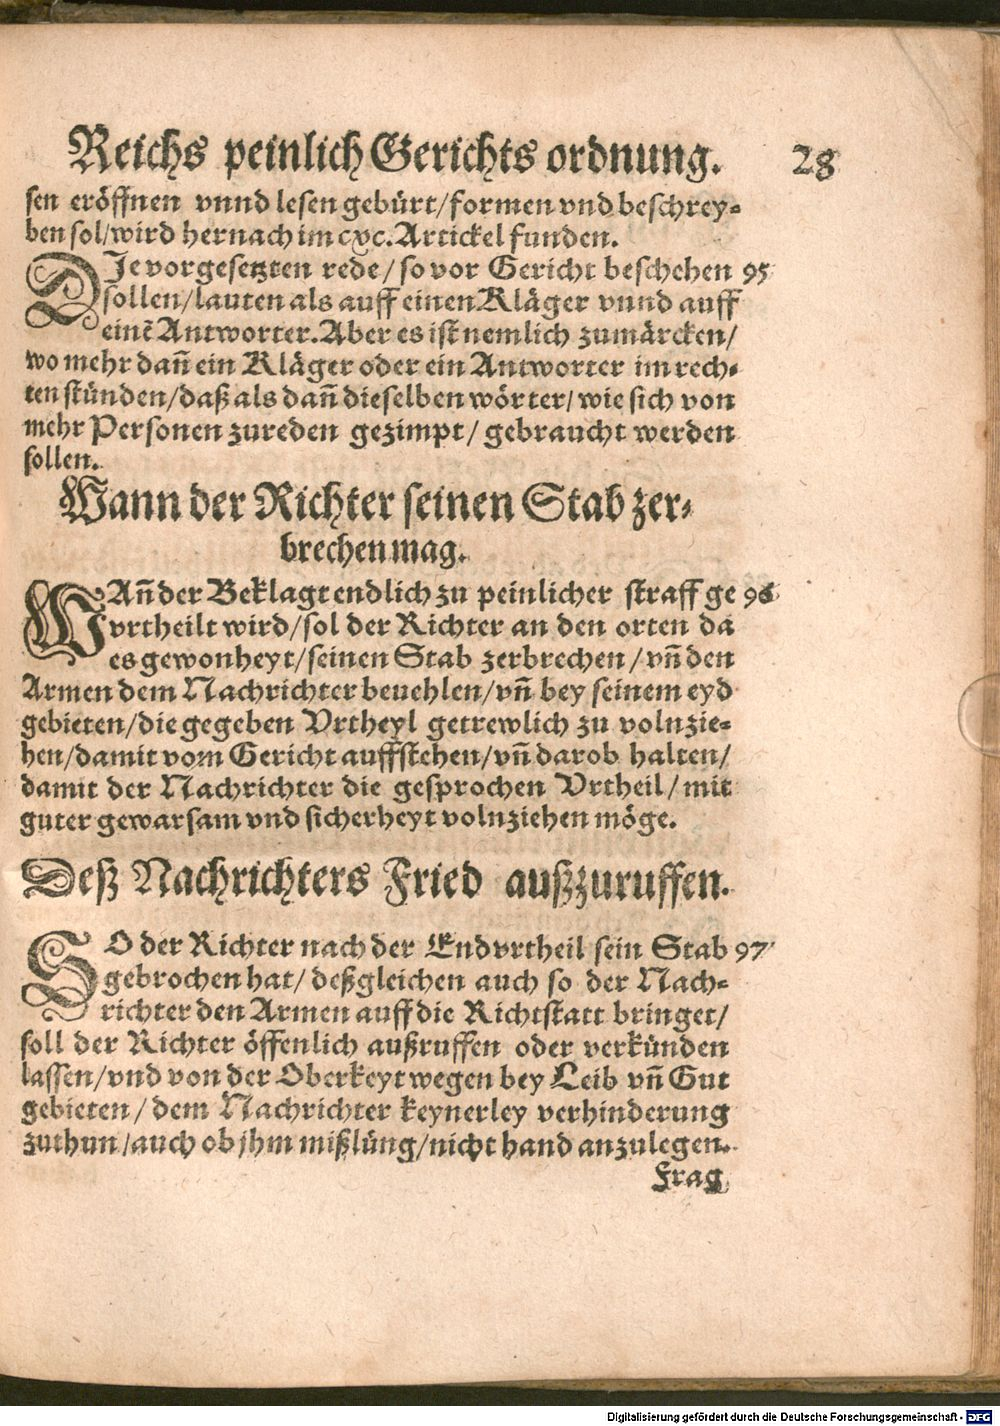 Reichs peinlich Gerichts ordnung. 28
sen eröffnen vnnd lesen gebürt/formen vnd beschrey⸗
ben sol/wird hernach im cxc. Artickel funden.
DJe vorgesetzten rede/so vor Gericht beschehen 95
sollen/lauten als auff einen Kläger vnnd auff
einē Antworter. Aber es ist nemlich zumärcken/
wo mehr dañ ein Kläger oder ein Antworter im rech⸗
ten stünden/daß als dañ dieselben wörter/wie sich von
mehr Personen zureden gezimpt/gebraucht werden
sollen.
Wann der Richter seinen Stab zer⸗
brechen mag.
WAñ der Beklagt endlich zu peinlicher straff ge 96
vrtheilt wird/sol der Richter an den orten da
es gewonheyt/seinen Stab zerbrechen/vñ den
Armen dem Nachrichter beuehlen/vñ bey seinem eyd
gebieten/die gegeben Vrtheyl getrewlich zu volnzie⸗
hen/damit vom Gericht auffstehen/vñ darob halten/
damit der Nachrichter die gesprochen Vrtheil/mit
guter gewarsam vnd sicherheyt volnziehen möge.
Deß Nachrichters Fried außzuruffen.
SO der Richter nach der Endvrtheil sein Stab 97
gebrochen hat/deßgleichen auch so der Nach⸗
richter den Armen auff die Richtstatt bringet/
soll der Richter öffenlich außruffen oder verkünden
lassen/vnd von der Oberkeyt wegen bey Leib vñ Gut
gebieten/dem Nachrichter keynerley verhinderung
zuthun/auch ob jhm mißlüng/nicht hand anzulegen.
Frag
Digitalisierung gefördert durch die Deutsche Forschungsgemeinschaft - DFG